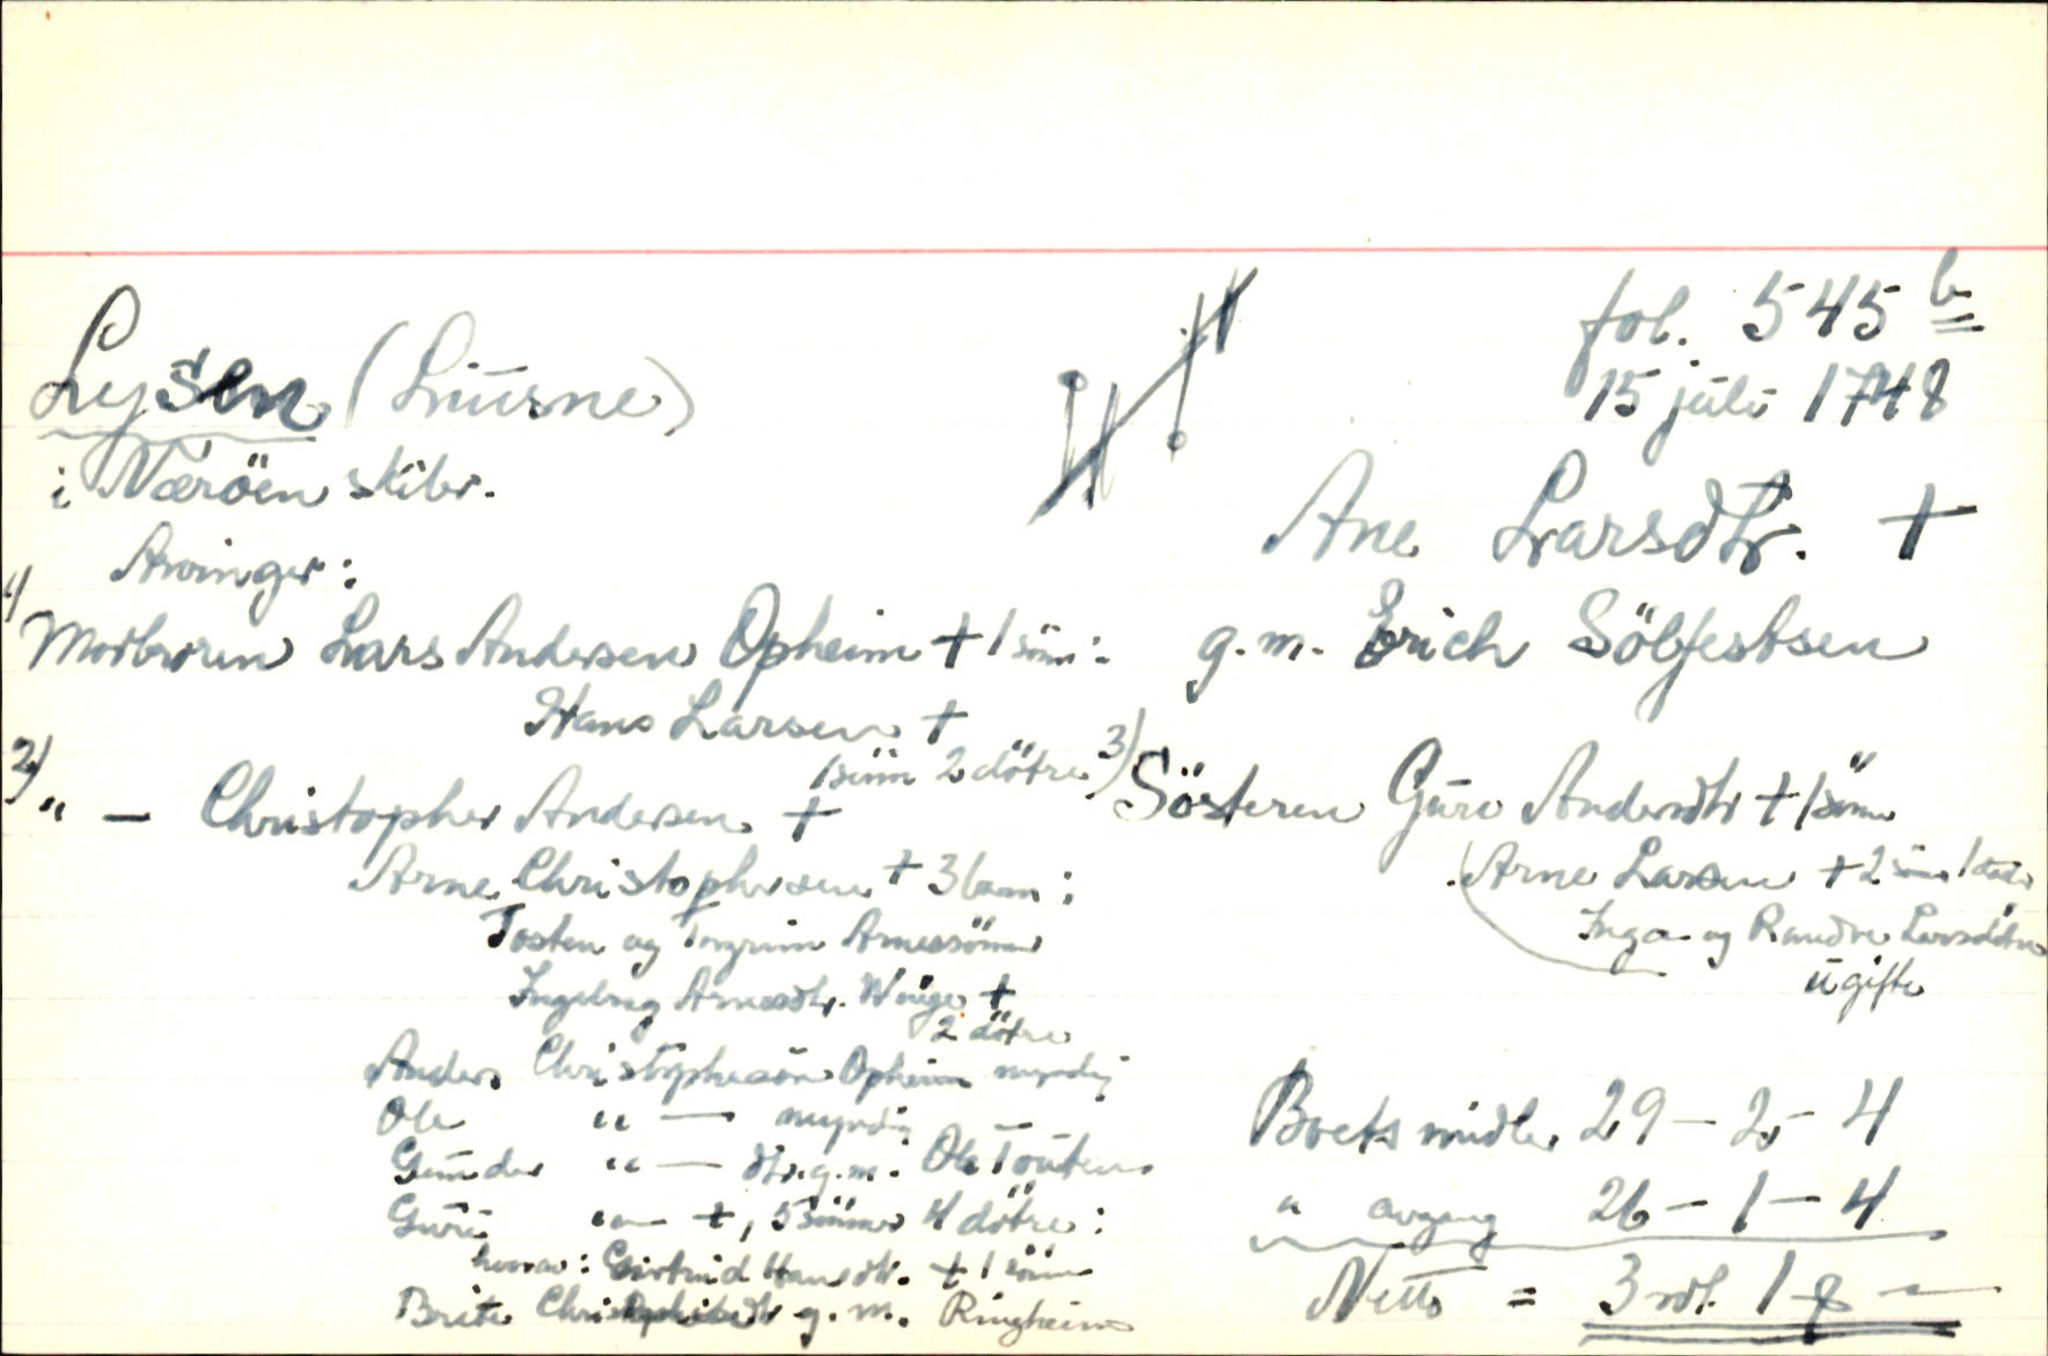 fol. 545 b
15 juli 1748
Lysen (Liusne)
i Næröen skibr.
Ane Larsdtr. †
g.m. Erich Sölfestsen
Arvinger:
1) Morbroren Lars Andersen Opheim † 1 sönn:
Hans Larsen †
1 sönn 2 dötre
2) " — Christopher Andersen †
Arne Christophersen † 3 barn:
Tosten og Torgrim Arnessönner
Ingebreg Arnesdtr. Winge †
2 dötre
Anders Christophersön Opheim myndig
Ole " — myndig
Gunder " — dtr. g.m. Ole
Guri " — †, 5 sönner 4 dötre:
hvorav: Giertrud Hansdtr. † 1 sönn
Brite Christophersdtr g.m. Ringheim
3) Sösteren Guro Andersdtr † 1 sönn
Arne Larsen † 2 sönn 1 datr
Inga og Randve Larsdötre
ugifte
Boets midler 29 – 2 – 4
" avgang 26 – 1 – 4
Netto = 3 rdl. 1 –